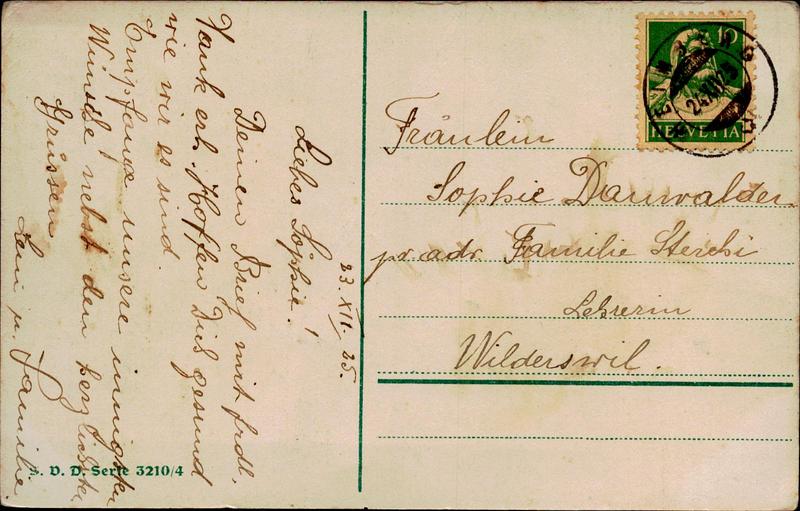 23. XII. 25.
Liebes Sophie!
Deinen Brief mit frdl.
Dank erh. Hoffen Dich gesund
wie wir es sind.
Empfange unsere innigsten
Wünsche nebst den herzlichsten
Grüssen
u. Familie
S. V. D. Serie 3210/4
10
HELVETIA
Fräulein
Sophie Dauwalder
pr. adr. Familie Sterchi
Lehrerin
Wilderswil.